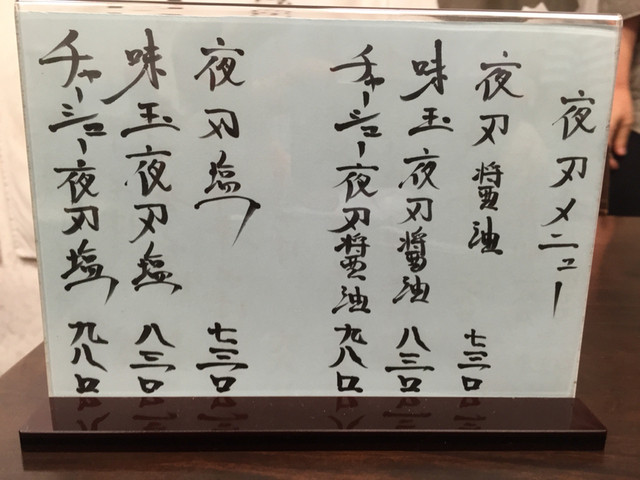 夜刃メニュー
夜刃醤油 七三〇
味玉夜刃醤油 八三〇
チャーシュー夜刃醤油 九八〇
夜刃塩 七三〇
味玉夜刃塩 八三〇
チャーシュー夜刃塩 九八〇